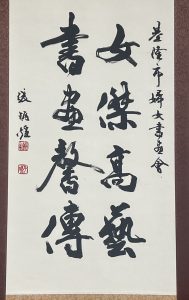 基隆市婦女書画會
女傑高藝
書画馨傳